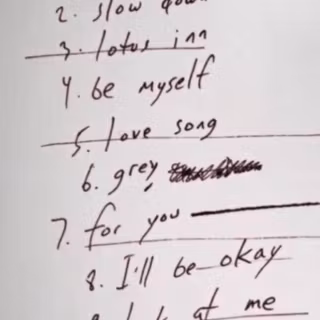 2. slow down
3. lotus inn
4. be myself
5. love song
6. grey
7. for you
8. I'll be okay
at me